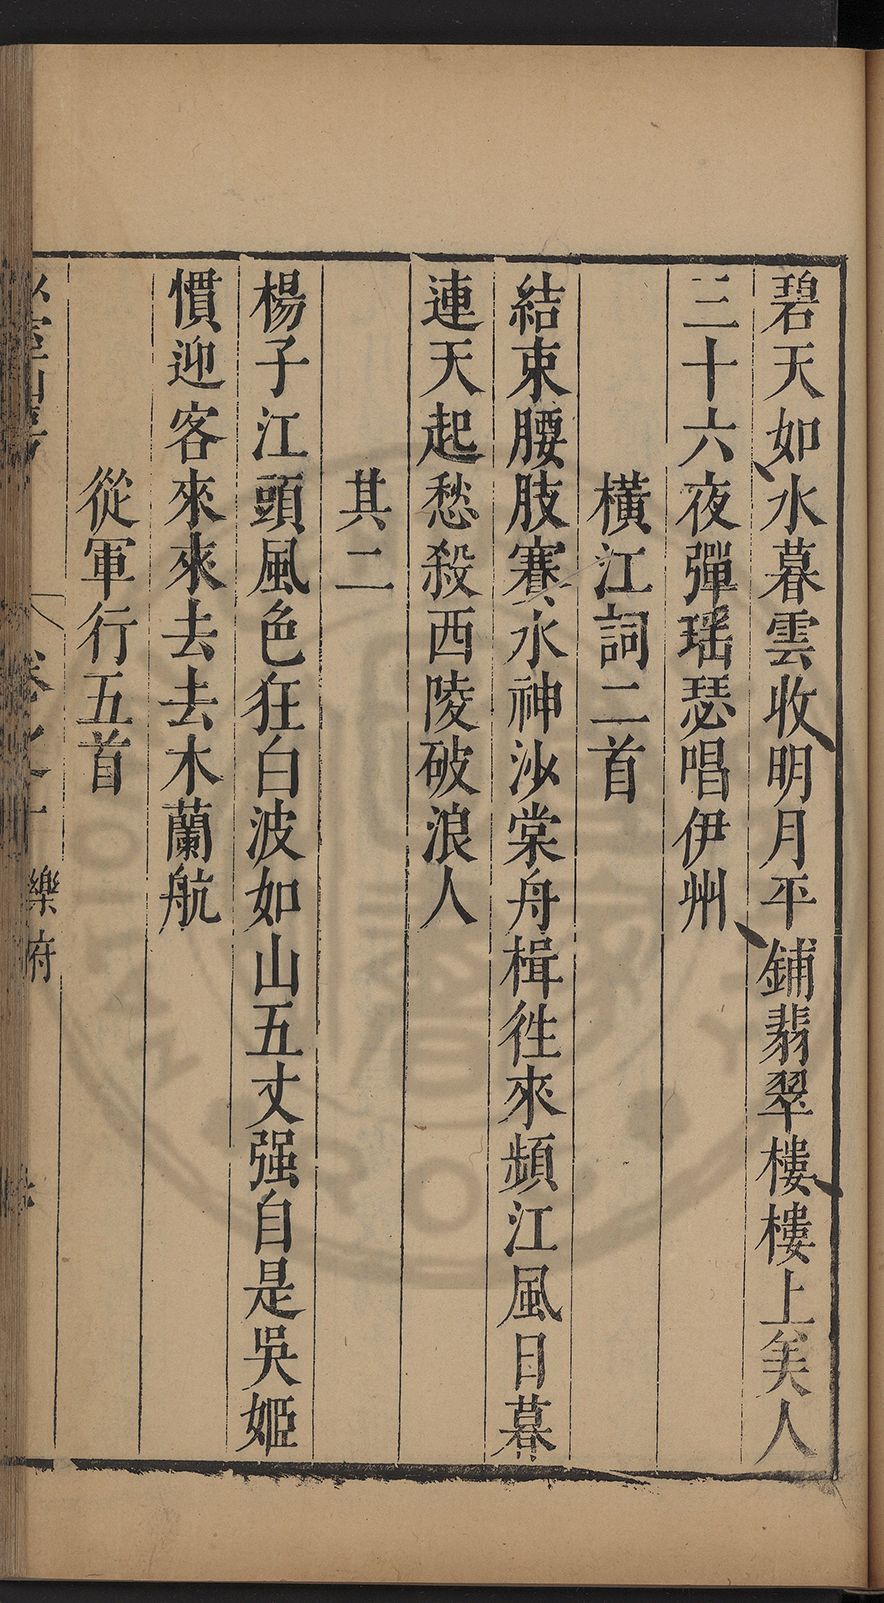 碧天如水暮雲收明月平鋪翡翠樓樓上美人
三十六夜彈瑶瑟唱伊州
橫江詞二首
結束腰肢賽水神沙棠舟楫徃來頻江風日暮
連天起愁殺西陵破浪人
其二
楊子江頭風色狂白波如山五丈强自是吳姬
慣迎客來來去去木蘭航
從軍行五首
卷之一 樂府